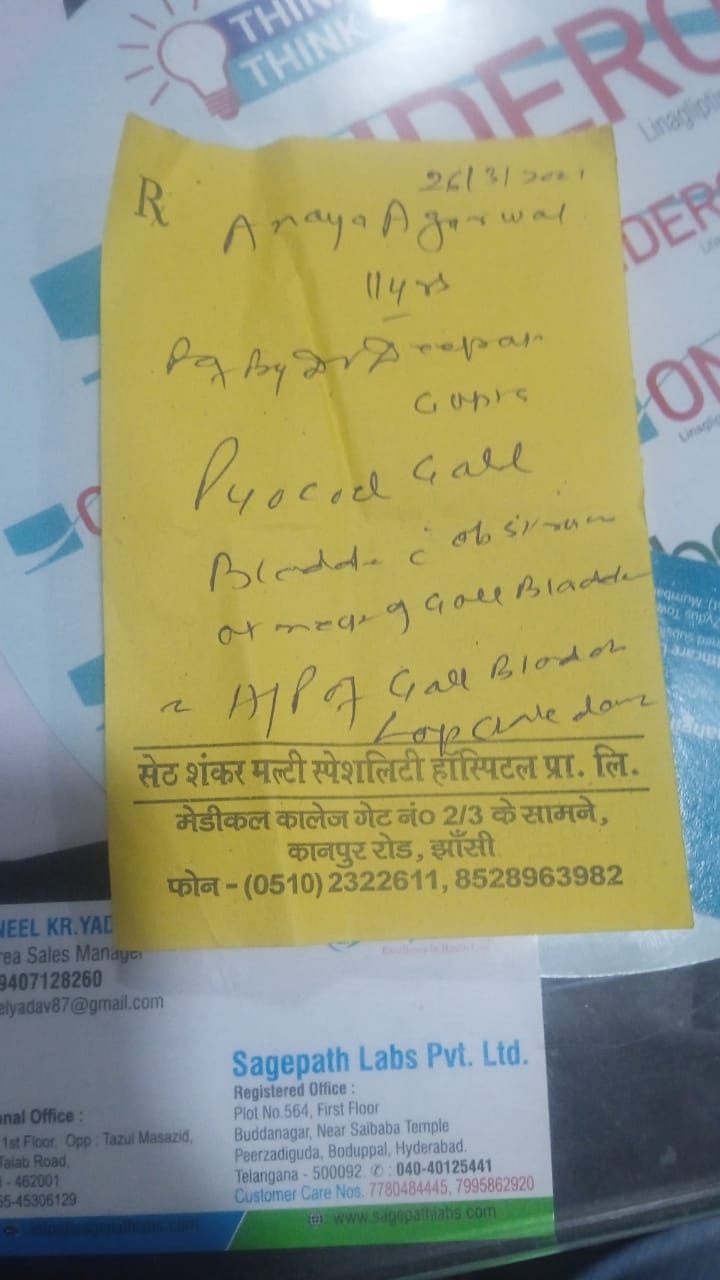 THINK
THINK
DERO
Linaglipti
DERO
ON
Linaglipti
Rx
26/3/2021
Anaya Agarwal
11 yrs
By Dr Deepak
Gupta
Pyocoel Gall
Bladder c̄
neck of Gall Bladder
H/P of Gall Bladder
done
सेठ शंकर मल्टी स्पेशलिटी हॉस्पिटल प्रा. लि.
मेडीकल कालेज गेट नं० 2/3 के सामने,
कानपुर रोड, झाँसी
फोन - (0510) 2322611, 8528963982
NEEL KR.YAD
rea Sales Manager
9407128260
elyadav87@gmail.com
onal Office :
1st Floor, Opp : Tazul Masazid,
Talab Road,
- 462001
55-45306129
Sagepath Labs Pvt. Ltd.
Registered Office :
Plot No.564, First Floor
Buddanagar, Near Saibaba Temple
Peerzadiguda, Boduppal, Hyderabad.
Telangana - 500092. ✆ : 040-40125441
Customer Care Nos. 7780484445, 7995862920
www.sagepathlabs.com